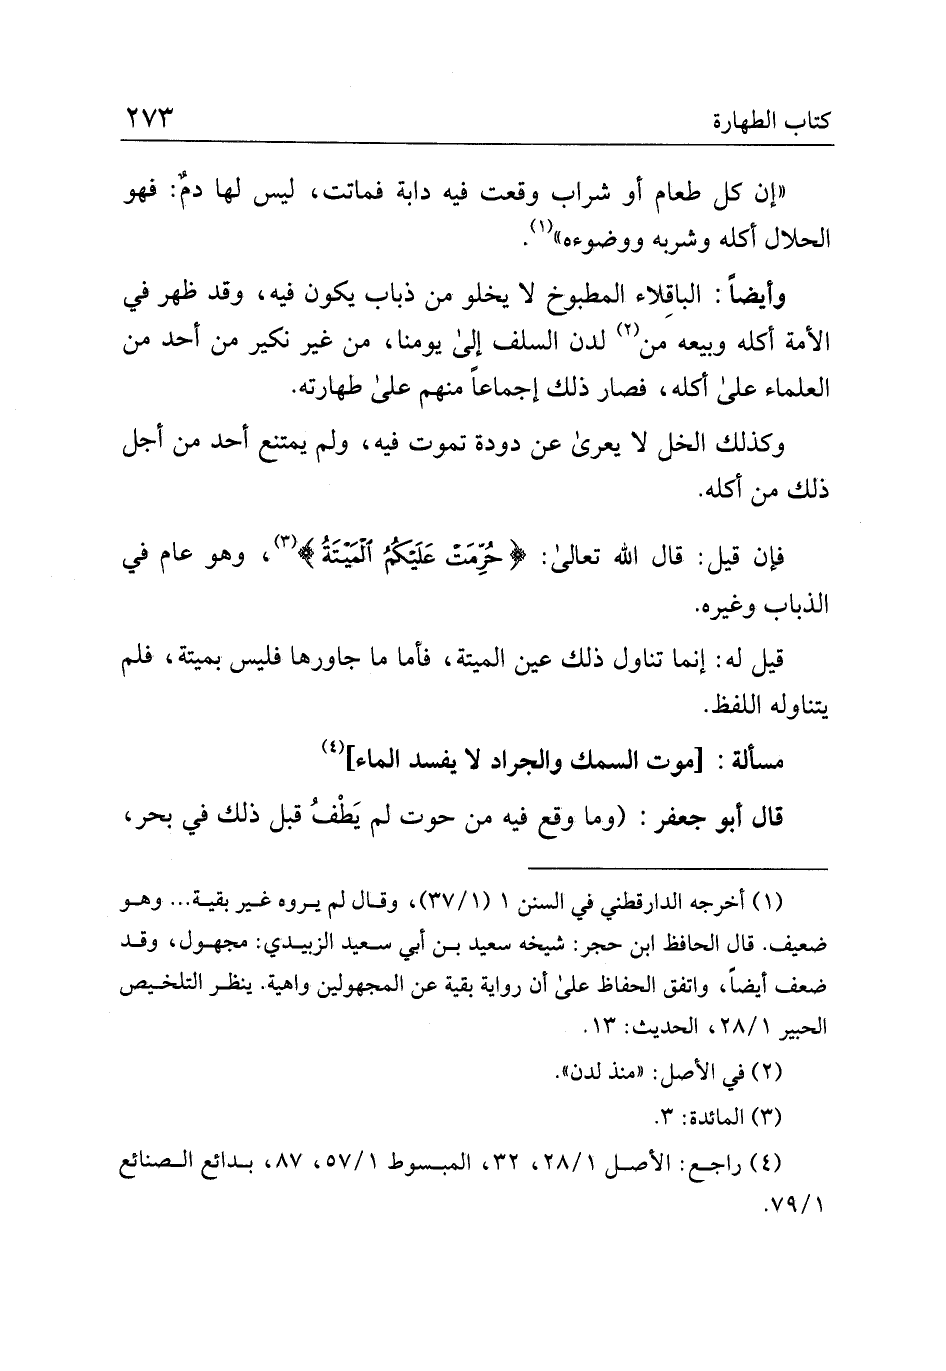 كتاب الطهارة ٢٧٣
«إن كل طعام أو شراب وقعت فيه دابة فماتت، ليس لها دمٌ: فهو
الحلال أكله وشربه ووضوءه»(١).
وأيضاً: الباقِلاء المطبوخ لا يخلو من ذباب يكون فيه، وقد ظهر في
الأمة أكله وبيعه من(٢) لدن السلف إلىٰ يومنا، من غير نكير من أحد من
العلماء علىٰ أكله، فصار ذلك إجماعاً منهم علىٰ طهارته.
وكذلك الخل لا يعرىٰ عن دودة تموت فيه، ولم يمتنع أحد من أجل
ذلك من أكله.
فإن قيل: قال الله تعالىٰ: ﴿حُرِّمَتْ عَلَيْكُمُ ٱلْمَيْتَةُ﴾(٣)، وهو عام في
الذباب وغيره.
قيل له: إنما تناول ذلك عين الميتة، فأما ما جاورها فليس بميتة، فلم
يتناوله اللفظ.
مسألة: [موت السمك والجراد لا يفسد الماء](٤)
قال أبو جعفر: (وما وقع فيه من حوت لم يَطْفُ قبل ذلك في بحر،
(١) أخرجه الدارقطني في السنن ١ (٣٧/١)، وقال لم يروه غير بقية... وهو
ضعيف. قال الحافظ ابن حجر: شيخه سعيد بن أبي سعيد الزبيدي: مجهول، وقد
ضعف أيضاً، واتفق الحفاظ علىٰ أن رواية بقية عن المجهولين واهية. ينظر التلخيص
الحبير ٢٨/١، الحديث: ١٣.
(٢) في الأصل: «منذ لدن».
(٣) المائدة: ٣.
(٤) راجع: الأصل ٢٨/١، ٣٢، المبسوط ٥٧/١، ٨٧، بدائع الصنائع
٧٩/١.